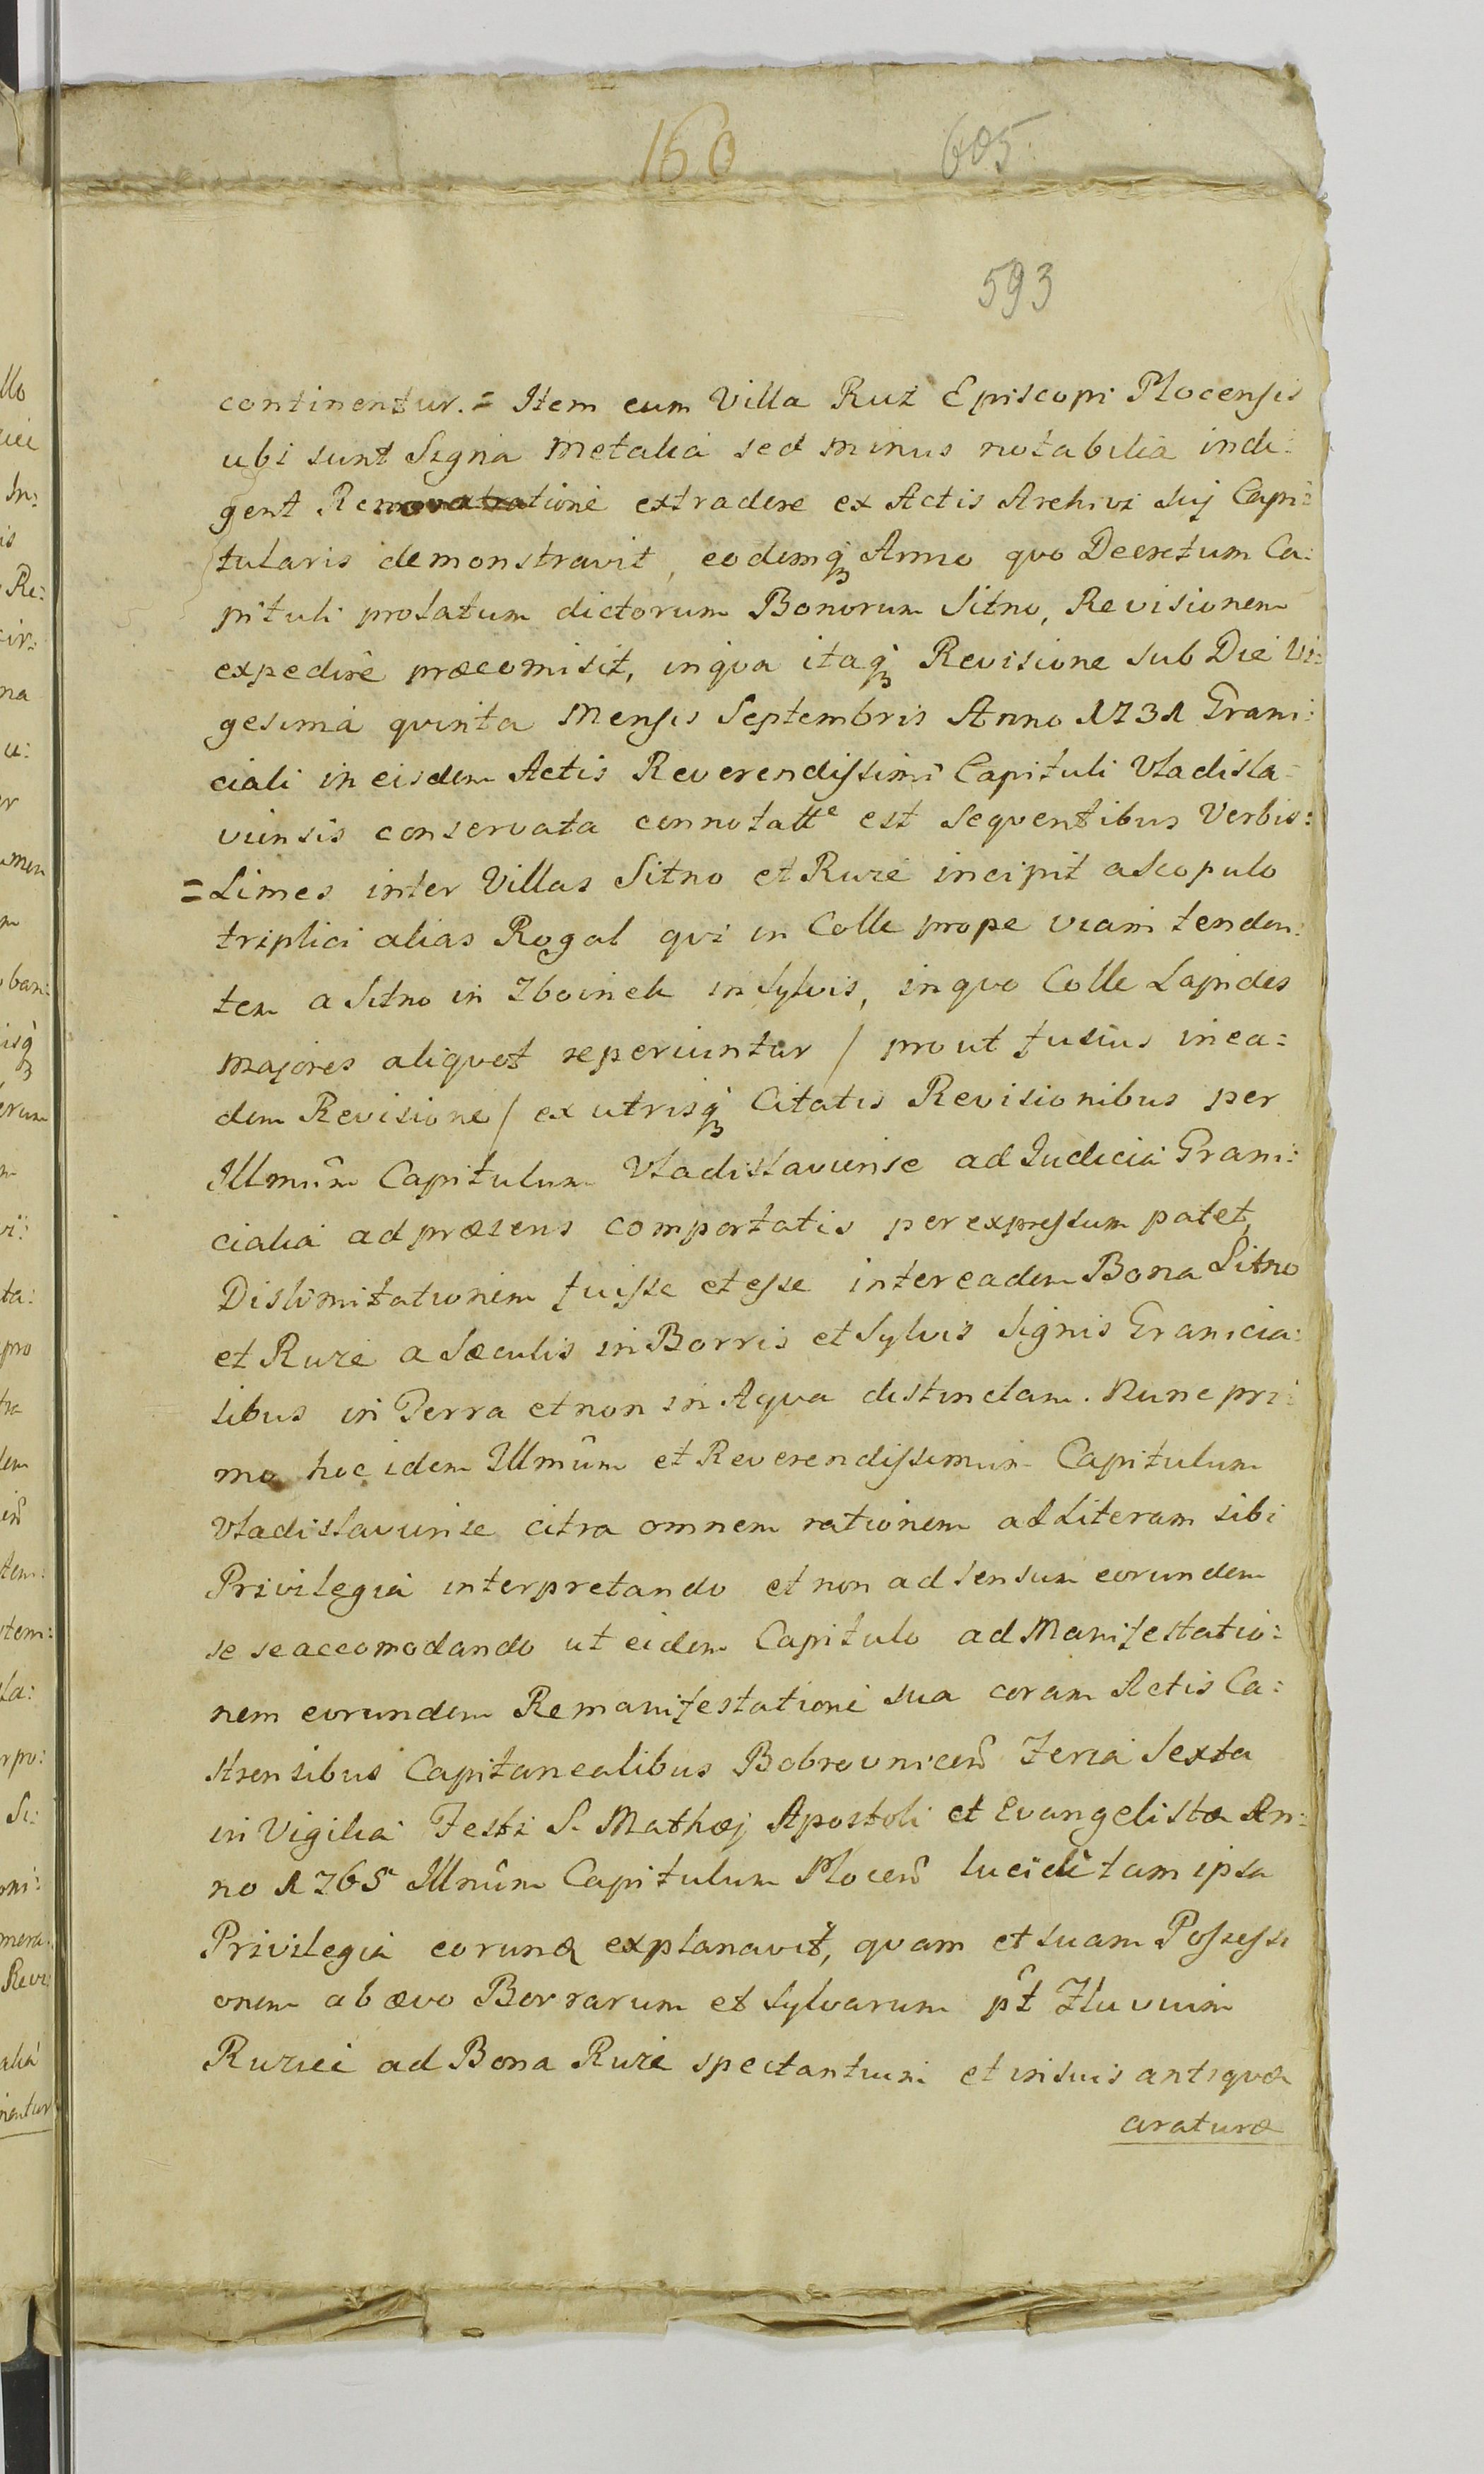 160 605.
593
continentur. = Item cum Villa Ruż Episcopi Plocensis
ubi sunt Signa Metalia sed minus notabilia indi:
gent Renovatione extradere ex Actis Archivi sui Capi:
tularis demonstravit, eodemq Anno quo Decretum Ca:
pituli prolatum dictorum Bonorum Sitno, Revisionem
expedire præcomisit, inqva itaq Revisione sub Die Vi:
gesima qvinta Mensis Septembris Anno 1731 Grani:
ciali in eisdem Actis Reverendissimi Capituli Vladisla:
viensis conservata connotatte est Seqventibus Verbis:
= Limes inter Villas Sitno et Ruże incipit a Scopulo
triplici alias Rogal qvi in Colle prope viam tenden:
tem a Sitno in Zboinek in Sylvis, inqvo Colle Lapides
majores aliqvot reperiuntur / prout fusius in ea:
dem Revisione / ex utrisq Citatis Revisionibus per
Illmûm Capitulum Vladislaviense ad Iudicia Grani:
cialia ad præsens comportatis per expressum patet,
Dislimitationem fuisse et esse inter eadem Bona Sitno
et Ruże a Sæculis in Borris et Sylvis Signis Granicia:
libus in Terra et non in Aqva distinctam. Nunc pri:
mo hoc idem Illmûm et Reverendissimum Capitulum
Vladislaviense citra omnem rationem ad Literam sibi
Privilegia interpretando et non ad sensum eorundem
se se accomodando ut eidem Capitulo ad Manifestatio:
nem eorundem Remanifestatione sua coram Actis Ca:
strensibus Capitanealibus Bobrovnicen̂ Feria Sexta
in Vigilia Festi S. Mathæj Apostoli et Evangelistæ An:
no 1765 Illmûm Capitulum Plocen̂ lucide tam ipsa
Privilegia eorund explanavit, qvam et suam Possessi
onem ab ævo Borrarum et Sylvarum pt̂ Fluvium
Ruziec ad Bona Ruże spectantium et in suis antiqvæ
araturæ